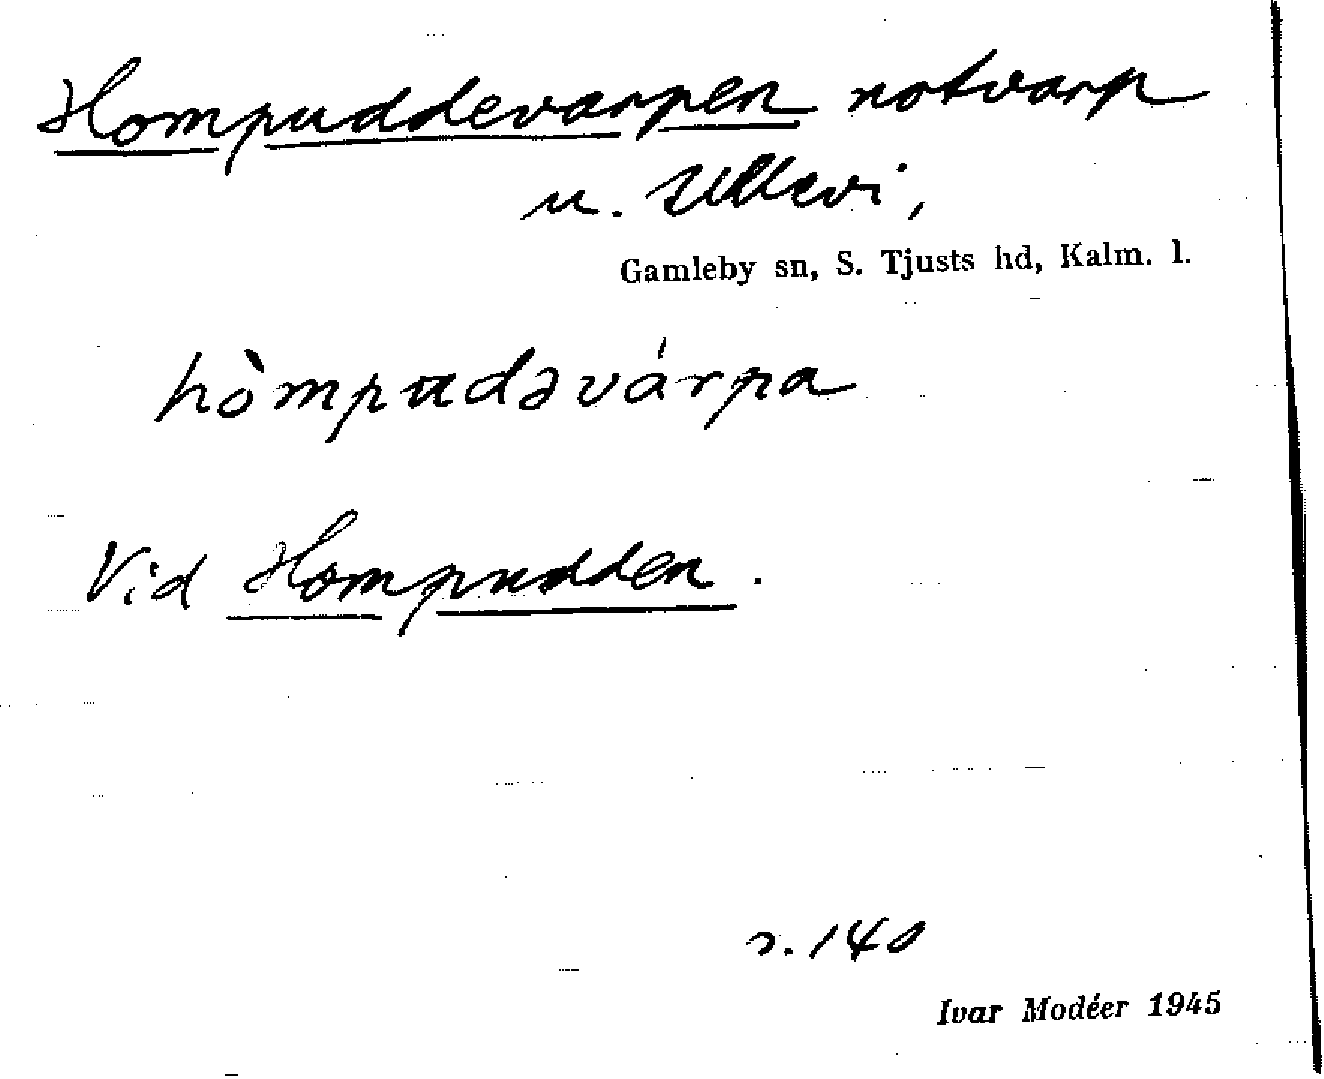 Hompuddevarpen notvarp
u. Ullevi,
Gamleby sn, S. Tjusts hd, Kalm. l.
hòmpudəvárpa
Vid Hompudden.
s. 140
Ivar Modéer 1945